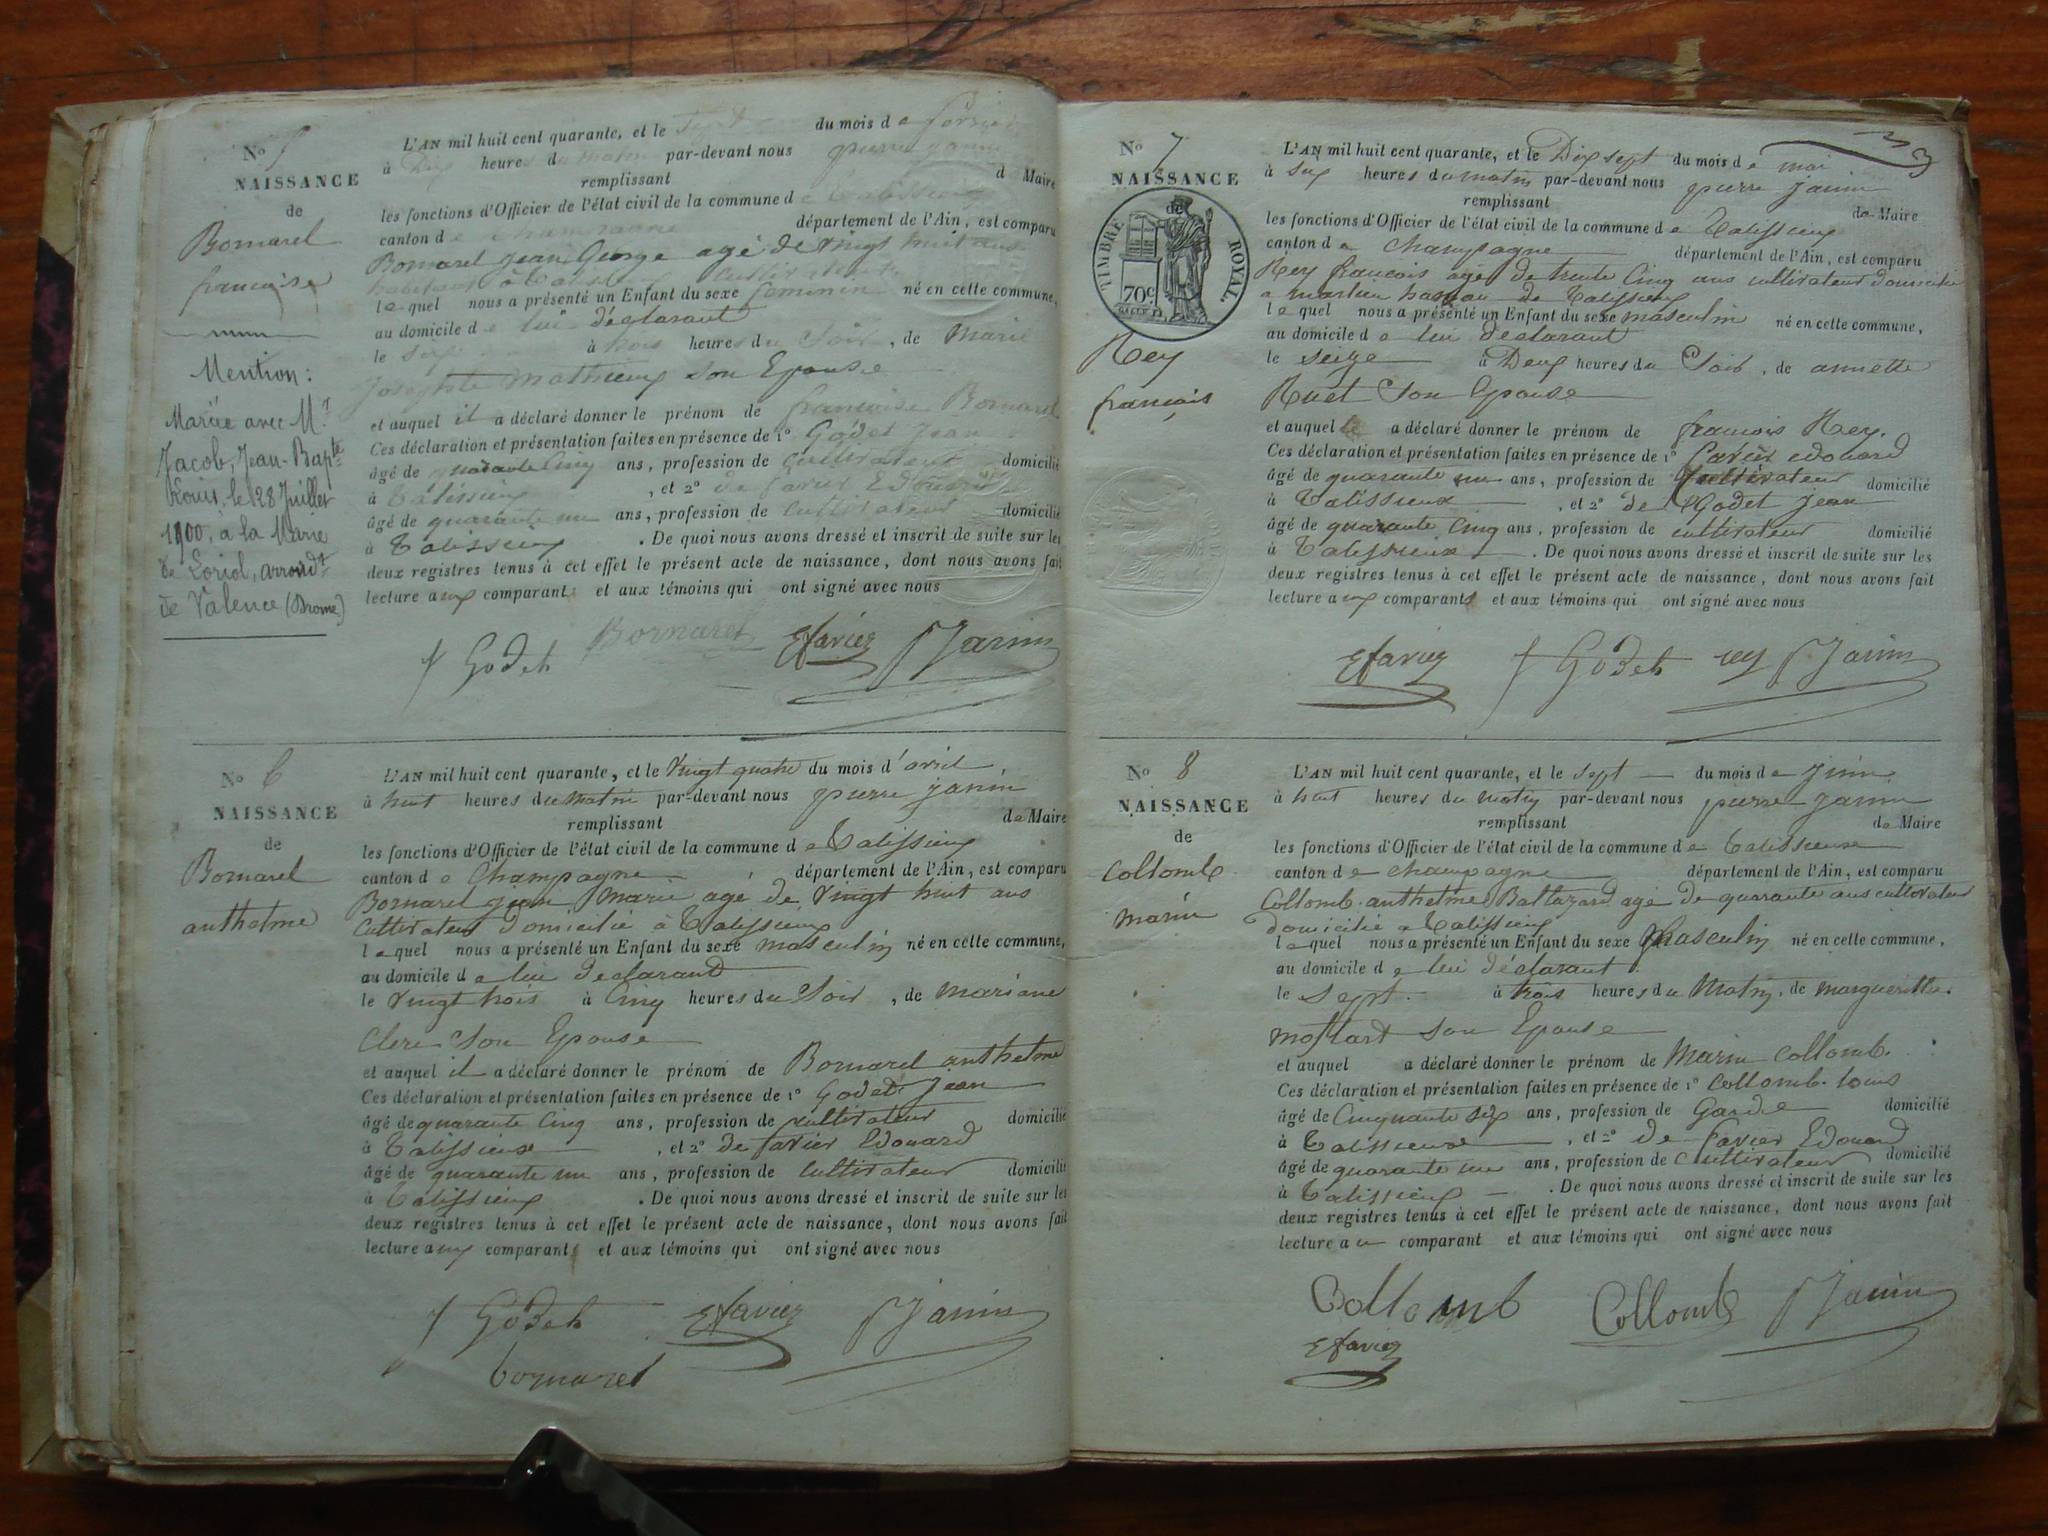 N° 5
NAISSANCE
de
Bornarel
françoise
Mention:
Mariée avec Mr
Jacob, Jean-Bapte
Louis, le 28 Juillet
1900, à la Mairie
de Loriol, arrondt
de Valence (Drome)
L'AN mil huit cent quarante, et le Sept du mois de février
à Dix heures du matin par-devant nous pierre janin
remplissant de Maire
les fonctions d'Officier de l'état civil de la commune de Talissieux
canton de Champagne département de l'Ain, est comparu
Bornarel Jean George agé de vingt huit ans
habitant à
lequel nous a présenté un Enfant du sexe feminin né en cette commune,
au domicile de lui déclarant
le six à trois heures du Soir, de Marie
Josephte Mathieux son Epouse
et auquel il a déclaré donner le prénom de françoise Bornarel
Ces déclaration et présentation faites en présence de 1° Godet Jean
âgé de quarante Cinq ans, profession de Cultivateur domicilié
à Talissieux, et 2° de favier Edouard
âgé de quarante un ans, profession de Cultivateur domicilié
à Talissieux. De quoi nous avons dressé et inscrit de suite sur les
deux registres tenus à cet effet le présent acte de naissance, dont nous avons fait
lecture aux comparants et aux témoins qui ont signé avec nous
J Godet Bornarel Efavier PJanin
N° 6
NAISSANCE
de
Bornarel
anthelme
L'AN mil huit cent quarante, et le Vingt quatre du mois d'avril
à huit heures du matin par-devant nous pierre janin
remplissant de Maire
les fonctions d'Officier de l'état civil de la commune de Talissieux
canton de Champagne département de l'Ain, est comparu
Bornarel jean Marie agé de Vingt huit ans
Cultivateur domicilié à Talissieux
lequel nous a présenté un Enfant du sexe masculin né en cette commune,
au domicile de lui declarand
le Vingt trois à Cinq heures du Soir, de mariane
Clerc son Epouse
et auquel il a déclaré donner le prénom de Bornarel anthelme
Ces déclaration et présentation faites en présence de 1° Godet Jean
âgé de quarante Cinq ans, profession de cultivateur domicilié
à Talissieux, et 2° de favier Edouard
âgé de quarante un ans, profession de Cultivateur domicilié
à Talissieux. De quoi nous avons dressé et inscrit de suite sur les
deux registres tenus à cet effet le présent acte de naissance, dont nous avons fait
lecture aux comparants et aux témoins qui ont signé avec nous
J Godet Efavier PJanin
bornarel
N° 7
NAISSANCE
de
TIMBRE ROYAL.
70c
Rey
françois
L'AN mil huit cent quarante, et le Dix sept du mois de mai
à six heures du matin par-devant nous pierre janin
remplissant de Maire
les fonctions d'Officier de l'état civil de la commune de Talissieux
canton de Champagne département de l'Ain, est comparu
Rey françois agé de trente Cinq ans cultivateur domicilié
a marlieu hameau de Talissieux
lequel nous a présenté un Enfant du sexe masculin né en cette commune,
au domicile de lui declarant
le seize à Deux heures du Soir, de annette
Ruet Son Epouse
et auquel a déclaré donner le prénom de francois Rey.
Ces déclaration et présentation faites en présence de 1° favier edouard
âgé de quarante un ans, profession de Cultivateur domicilié
à Talissieux, et 2° de Godet jean
âgé de quarante Cinq ans, profession de cultivateur domicilié
à Talissieux. De quoi nous avons dressé et inscrit de suite sur les
deux registres tenus à cet effet le présent acte de naissance, dont nous avons fait
lecture aux comparants et aux témoins qui ont signé avec nous
Efavier J Godet rey PJanin
N° 8
NAISSANCE
de
Collomb
marin
L'AN mil huit cent quarante, et le sept du mois de juin
à huit heures du matin par-devant nous pierre janin
remplissant de Maire
les fonctions d'Officier de l'état civil de la commune de Talissieux
canton de champagne département de l'Ain, est comparu
Collomb anthelme Baltazard agé de quarante ans cultivateur
domicilié a Talissieux
lequel nous a présenté un Enfant du sexe Masculin né en cette commune,
au domicile de lui déclarant
le Sept à trois heures du Matin, de margueritte
mollard son Epouse
et auquel a déclaré donner le prénom de Marin Collomb.
Ces déclaration et présentation faites en présence de 1° Collomb louis
âgé de Cinquante six ans, profession de Garde domicilié
à Talissieux, et 2° de favier Edouard
âgé de quarante un ans, profession de Cultivateur domicilié
à Talissieux. De quoi nous avons dressé et inscrit de suite sur les
deux registres tenus à cet effet le présent acte de naissance, dont nous avons fait
lecture au comparant et aux témoins qui ont signé avec nous
Collomb Collomb PJanin
Efavier